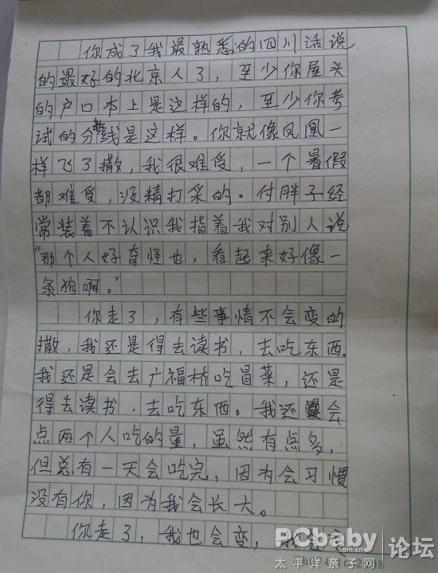 你成了我最熟悉的四川话说
的最好的北京人了，至少你屋头
的户口本上是这样的，至少你考
试的分数线是这样。你就像凤凰一
样飞了撒，我很难受，一个暑假
都难受，没精打采的。付胖子经
常装着不认识我指着我对别人说
“那个人好奇怪也，看起来好像一
条狗啊。”
你走了，有些事情不会变的
撒，我还是得去读书，去吃东西。
我还是会去广福桥吃冒菜，还是
得去读书，去吃东西。我还会
点两个人吃的量，虽然有点多，
但总有一天会吃完，因为会习惯
没有你，因为我会长大。
你走了，我也会变，我会
PCbaby 论坛
太平洋亲子网